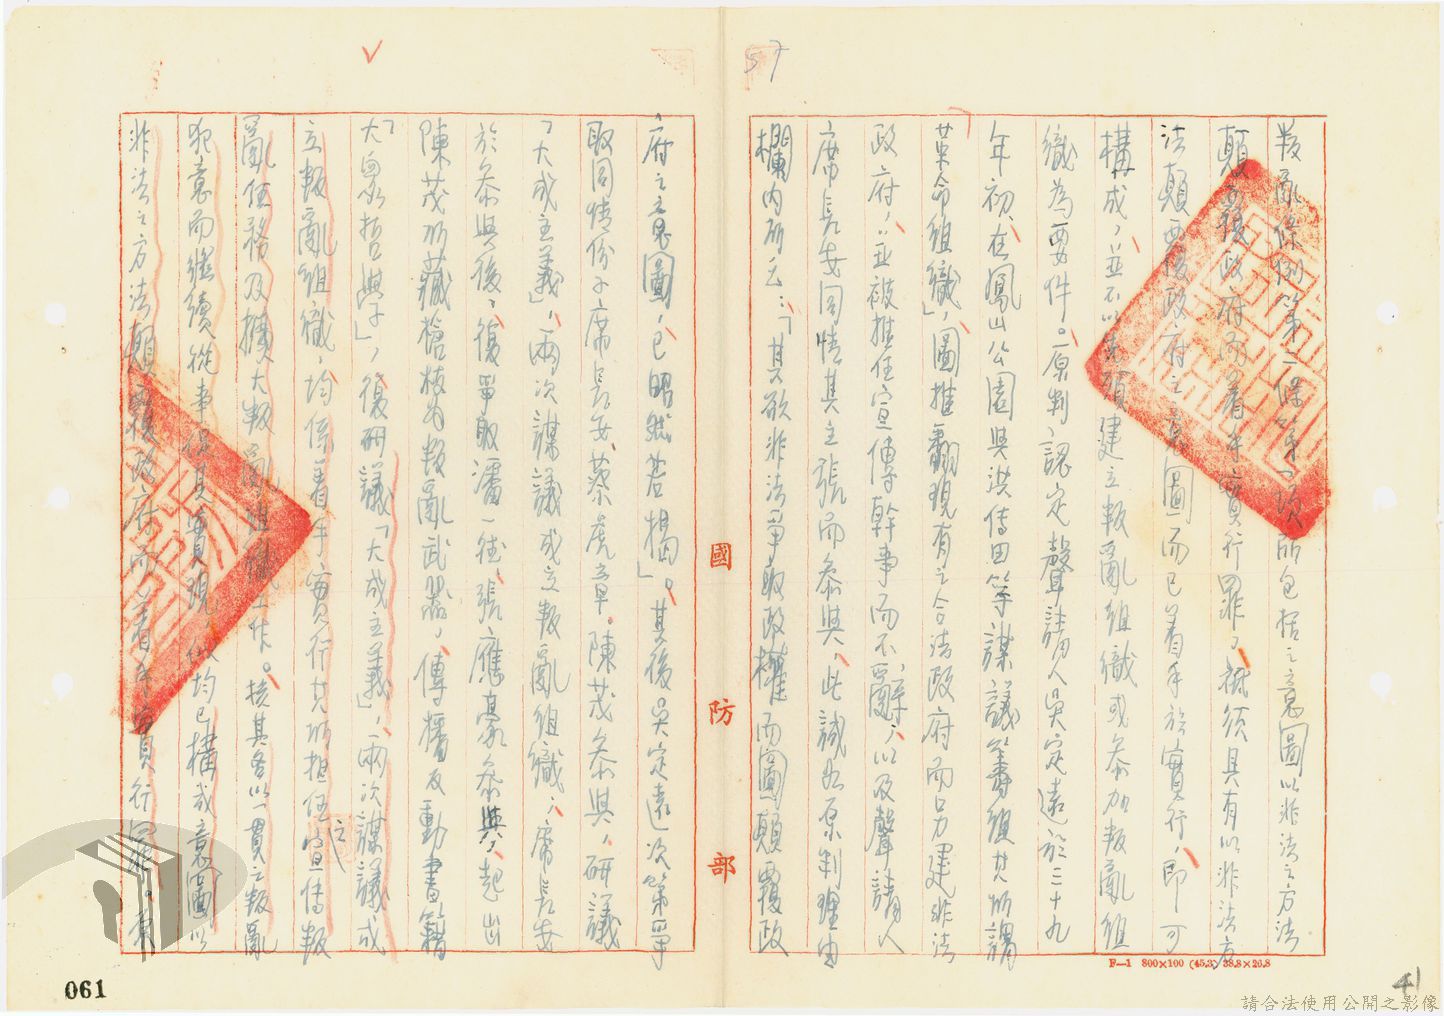 叛亂條例第二條第一項所包括之意圖以非法之方法
顛覆政府而着手實行罪，祇須具有以非法方
法顛覆政府之意圖而已着手於實行，即可
構成，並不以先須建立叛亂組織或參加叛亂組
織為要件。原判認定聲請人吳定遠於三十九
年初，在鳳山公園與洪傳田等謀議籌組其所謂
革命組織」，圖推翻現有之合法政府而另建非法
政府，並被推任宣傳幹事而不辭，以及聲請人
席長安同情其主張而參與，此誠如原判理由
欄內所云：「其欲非法爭取政權而圖顛覆政
府之意圖，已昭然若揭」。其後吳定遠次第爭
取同情份子席長安、蔡虎章、陳茂參與，研議
「大成主義」，兩次謀議成立叛亂組織，席長安
於參與後，復爭取潘一德、張應豪參與，起出
陳茂所藏槍枝為叛亂武器，傳播反動書籍
「大眾哲學」，復研議「大成主義」，兩次謀議成
立叛亂組織，均係着手實行其所担任之宣傳叛
亂任務及擴大叛亂組織工作。按其各以一貫之叛亂
犯意而繼續從事俱具實現，似均已構成意圖以
非法之方法顛覆政府而着手實行罪。原
國防部
F—1 800×100 (45.3) 38.8×26.8
57
41
061
請合法使用公開之影像